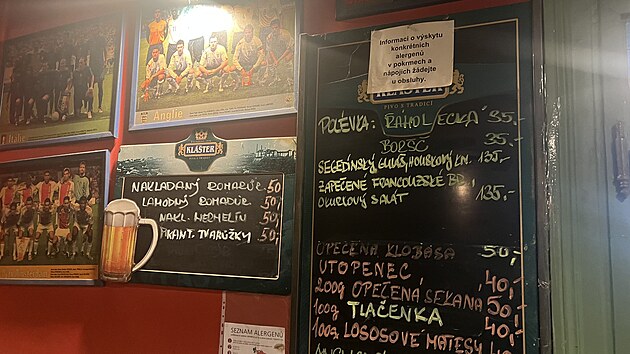 Itálie
Anglie
Informaci o výskytu
konkrétních
alergenů
v pokrmech a
nápojích žádejte
u obsluhy.
KLÁŠTER
PIVO S TRADICÍ
POLÉVKA: RÁHOLECKÁ 35,-
BORŠČ 35,-
SEGEDÍNSKÝ GULÁŠ, HOUSKOVÝ KN. 135,-
ZAPEČENÉ FRANCOUZSKÉ BR.
OKURKOVÝ SALÁT 135,-
OPEČENÁ KLOBÁSA 50,-
UTOPENEC 40,-
200g OPEČENÁ SEKANÁ 50,-
100g TLAČENKA 40,-
100g LOSOSOVÉ MATESY
KLÁŠTER
NAKLÁDANÝ ROMADÚR 50,-
LAHODNÝ ROMADÚR 50,-
NAKL. HERMELÍN 50,-
PIKANT. TVARŮŽKY 50,-
SEZNAM ALERGENŮ